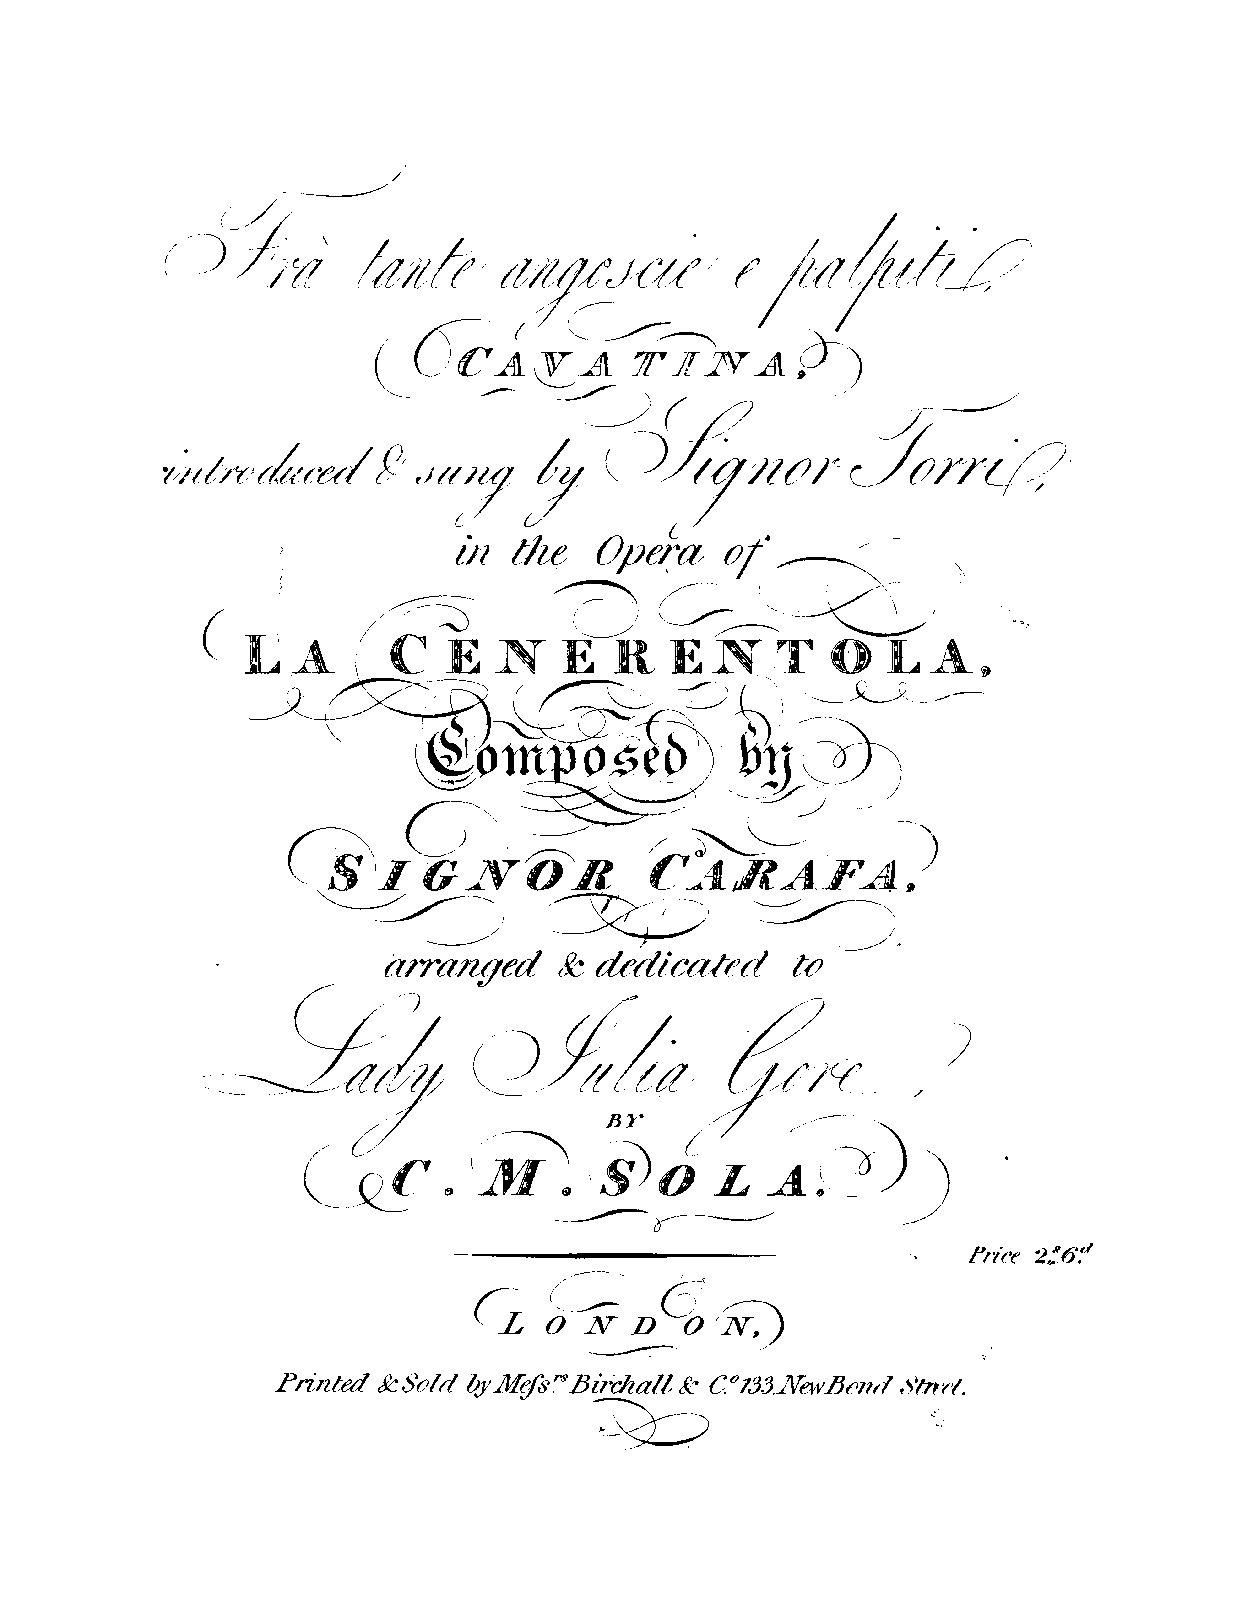 Frà tante angoscie e palpiti,
CAVATINA,
introduced & sung by Signor Torri,
in the Opera of
LA CENERENTOLA,
Composed by
SIGNOR CARAFA.
arranged & dedicated to
Lady Julia Gore,
BY
C. M. SOLA.
Price 2s. 6d
LONDON,
Printed & Sold by Meſsrs. Birchall & Co. 133, New Bond Street.